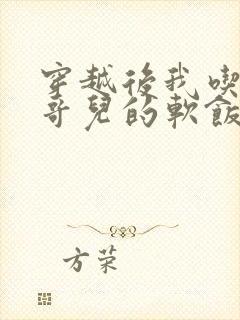 穿越後我喫
哥兒的軟飯
方荣